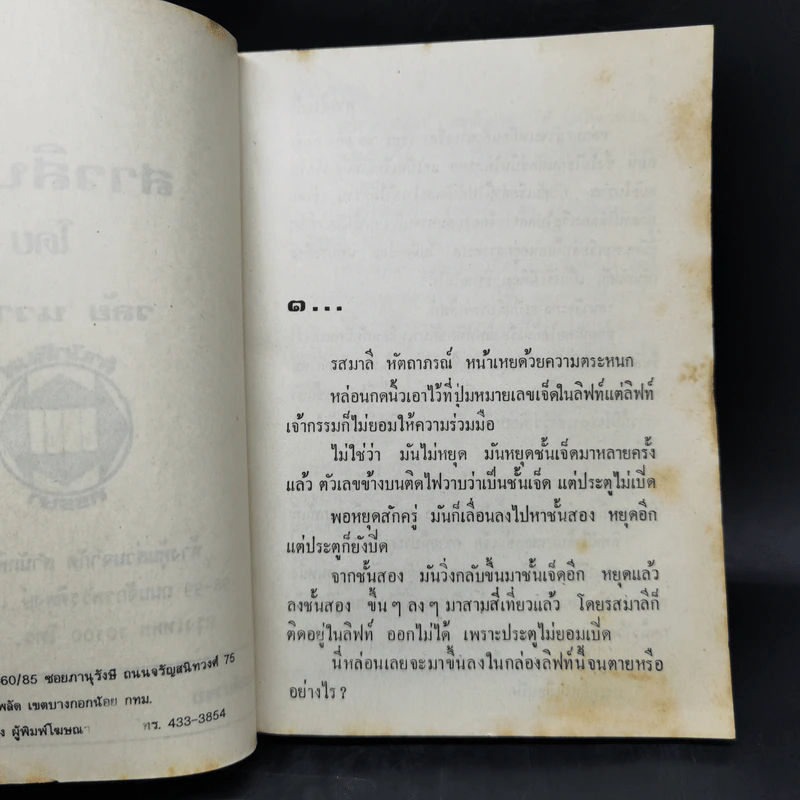 60/85 ซอยภานุรังษี ถนนจรัญสนิทวงศ์ 75
พลัด เขตบางกอกน้อย กทม.
ง ผู้พิมพ์โฆษณา โทร. 433-3854
๑...
รสมาลี หัตถาภรณ์ หน้าเหยด้วยความตระหนก
หล่อนกดนิ้วเอาไว้ที่ปุ่มหมายเลขเจ็ดในลิฟท์แต่ลิฟท์
เจ้ากรรมก็ไม่ยอมให้ความร่วมมือ
ไม่ใช่ว่า มันไม่หยุด มันหยุดชั้นเจ็ดมาหลายครั้ง
แล้ว ตัวเลขข้างบนติดไฟวาบว่าเป็นชั้นเจ็ด แต่ประตูไม่เปิด
พอหยุดสักครู่ มันก็เลื่อนลงไปหาชั้นสอง หยุดอีก
แต่ประตูก็ยังปิด
จากชั้นสอง มันวิ่งกลับขึ้นมาชั้นเจ็ดอีก หยุดแล้ว
ลงชั้นสอง ขึ้นๆ ลงๆ มาสามสี่เที่ยวแล้ว โดยรสมาลีก็
ติดอยู่ในลิฟท์ ออกไม่ได้ เพราะประตูไม่ยอมเปิด
นี่หล่อนเลยจะมาขึ้นลงในกล่องลิฟท์นี้จนตายหรือ
อย่างไร?